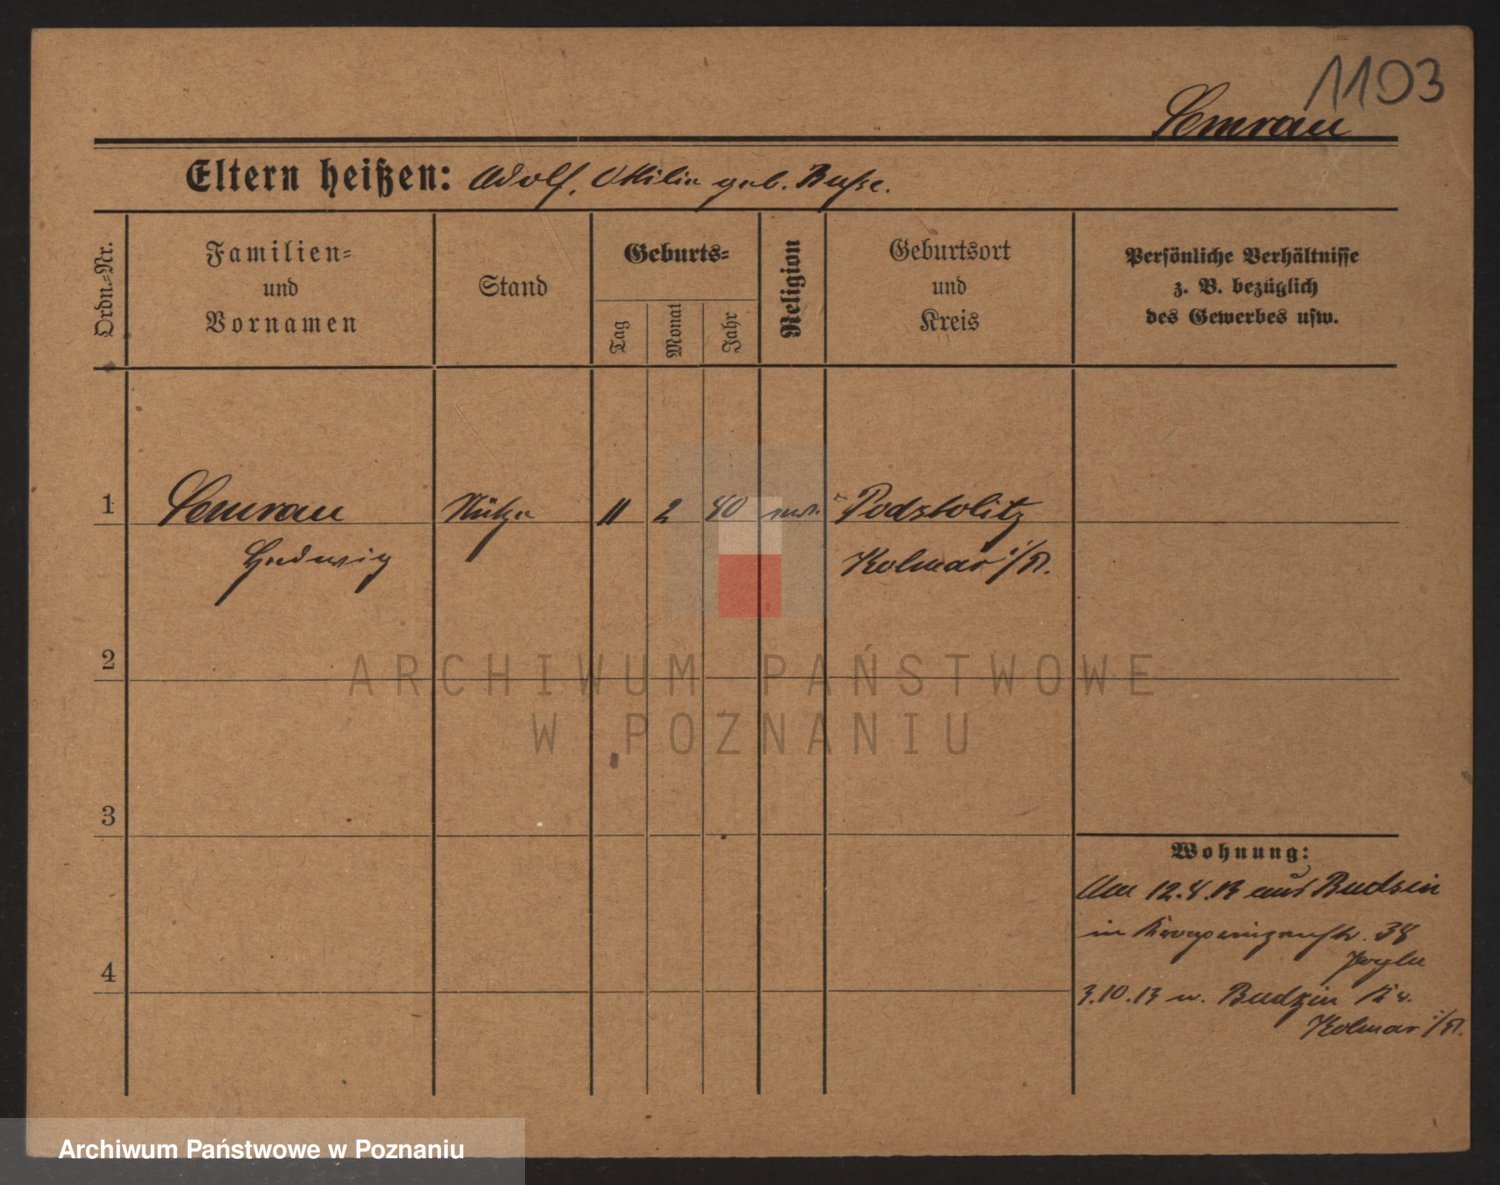 1103
Semrau
Eltern heißen: Adolf, Ottilie geb. Busse.
Ordn.-Nr.
Familien-
und
Vornamen
Stand
Geburts-
Tag
Monat
Jahr
Religion
Geburtsort
und
Kreis
Persönliche Verhältnisse
z. B. bezüglich
des Gewerbes usw.
1
Semrau
Hedwig
Stütze
11
2
90
ev.
Podstolitz
Kolmar i/P.
2
3
4
Wohnung:
12.4.13 aus Budsin
in 38
3.10.13 n. Budzin Kr.
Kolmar i/P.
ARCHIWUM PAŃSTWOWE
W POZNANIU
Archiwum Państwowe w Poznaniu